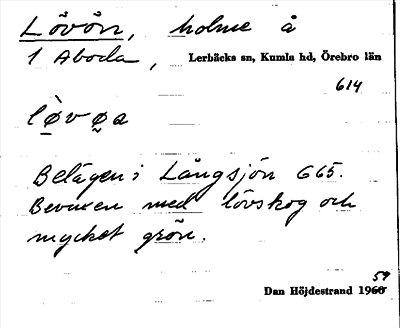 Lövön, holme å
1 Aboda, Lerbäcks sn, Kumla hd, Örebro län
614
lø̀vøa
Belägen i Långsjön G65.
Bevuxen med lövskog och
mycket grön.
59
Dan Höjdestrand 1960